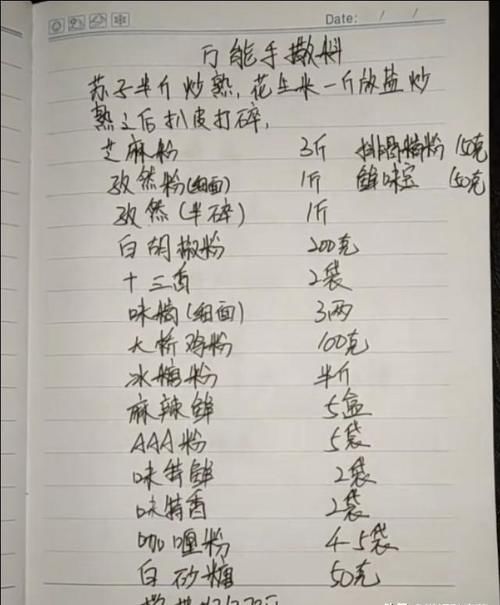 Date: / /
万能手撒料
苏子半斤炒熟,花生米一斤放盐炒
熟之后扒皮打碎,
芝麻粉 3斤 排骨精粉 150克
孜然粉(细面) 1斤 鲜味宝 150克
孜然(半碎) 1斤
白胡椒粉 200克
十三香 2袋
味精(细面) 3两
大桥鸡粉 100克
冰糖粉 半斤
麻辣鲜 5盒
AAA粉 5袋
味特鲜 2袋
味特香 2袋
咖喱粉 4-5袋
白砂糖 50克